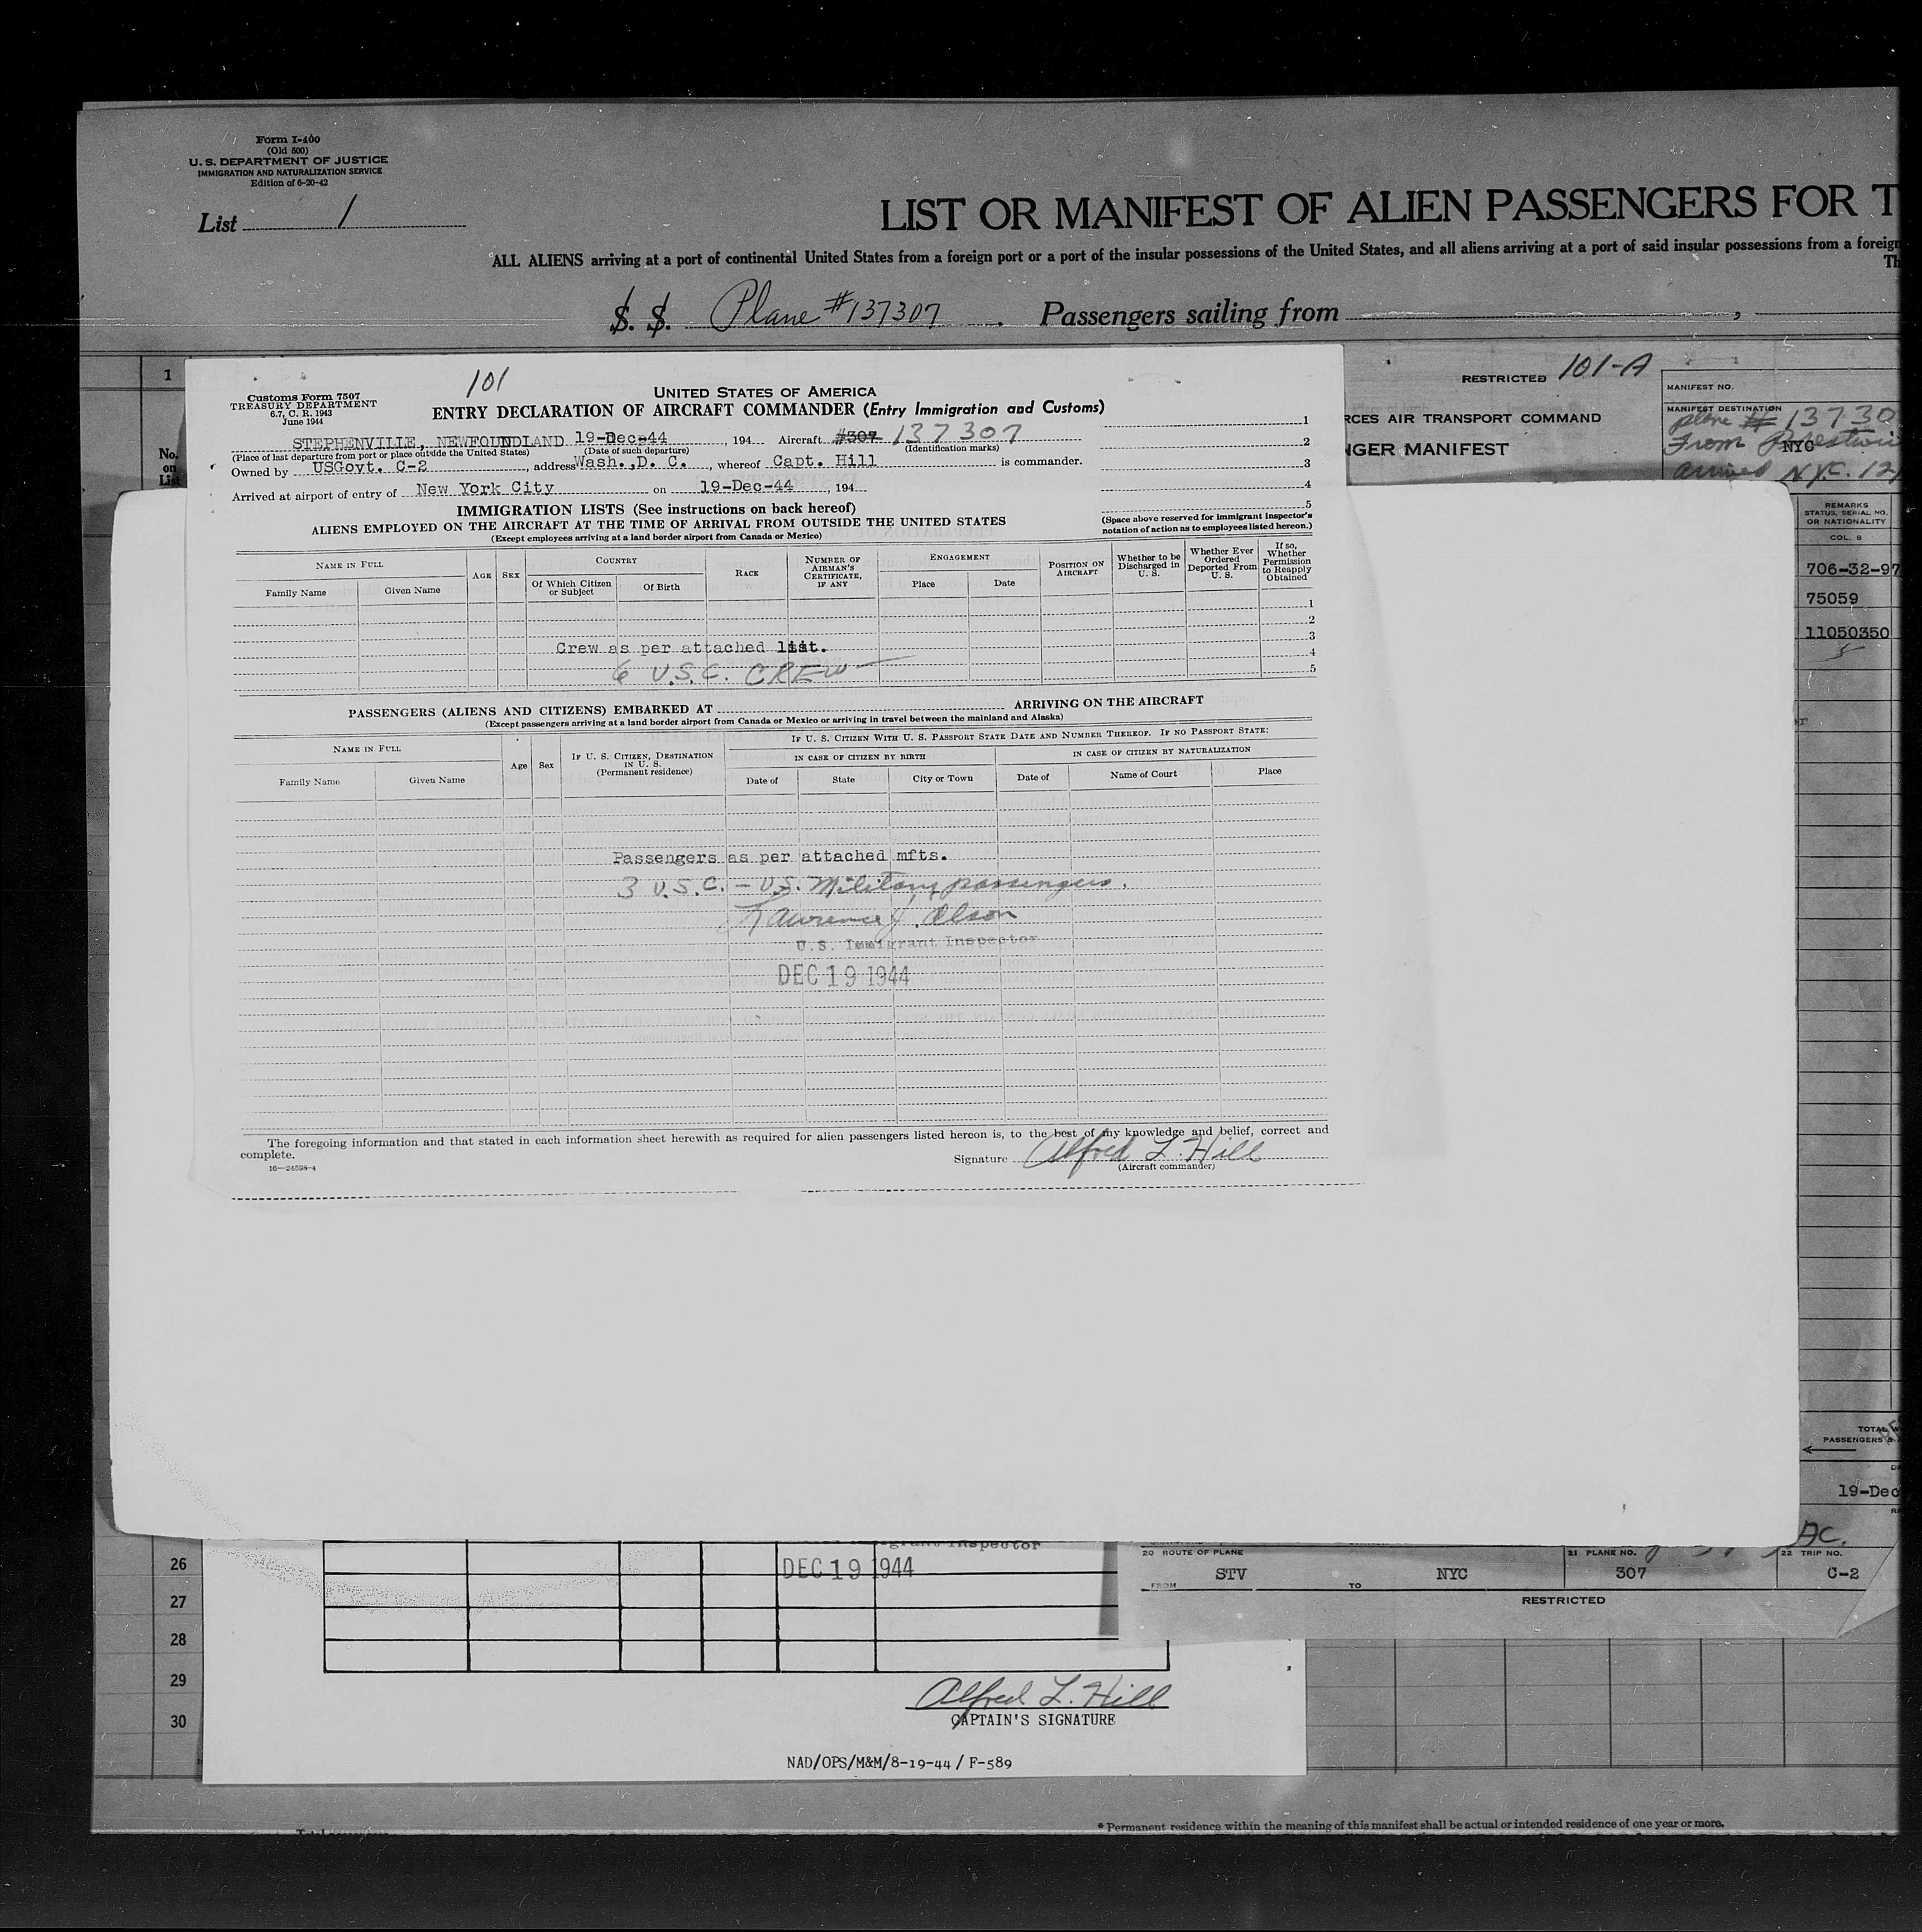 Form I-400
(Old 500)
U. S. DEPARTMENT OF JUSTICE
IMMIGRATION AND NATURALIZATION SERVICE
Edition of 6-20-42
List 1
LIST OR MANIFEST OF ALIEN PASSENGERS FOR T
ALL ALIENS arriving at a port of continental United States from a foreign port or a port of the insular possessions of the United States, and all aliens arriving at a port of said insular possessions from a foreign
Th
S. S. Plane #137307. Passengers sailing from ,
1
No.
on
List
101
Customs Form 7507
TREASURY DEPARTMENT
6.7, C. R. 1943
June 1944
UNITED STATES OF AMERICA
ENTRY DECLARATION OF AIRCRAFT COMMANDER (Entry Immigration and Customs)
STEPHENVILLE, NEWFOUNDLAND 19-Dec-44, 194 Aircraft #307 137307
(Place of last departure from port or place outside the United States) (Date of such departure) (Identification marks)
Owned by USGovt. C-2, address Wash., D. C., whereof Capt. Hill is commander.
Arrived at airport of entry of New York City on 19-Dec-44, 194
1
2
3
4
5
(Space above reserved for immigrant inspector's
notation of action as to employees listed hereon.)
IMMIGRATION LISTS (See instructions on back hereof)
ALIENS EMPLOYED ON THE AIRCRAFT AT THE TIME OF ARRIVAL FROM OUTSIDE THE UNITED STATES
(Except employees arriving at a land border airport from Canada or Mexico)
NAME IN FULL
Family Name Given Name
AGE SEX
COUNTRY
Of Which Citizen or Subject Of Birth
RACE
NUMBER OF AIRMAN'S CERTIFICATE, IF ANY
ENGAGEMENT
Place Date
POSITION ON AIRCRAFT
Whether to be Discharged in U. S.
Whether Ever Ordered Deported From U. S.
If so, Whether Permission to Reapply Obtained
1
2
3
4
5
Crew as per attached list.
6 U.S.C. CREW
PASSENGERS (ALIENS AND CITIZENS) EMBARKED AT ARRIVING ON THE AIRCRAFT
(Except passengers arriving at a land border airport from Canada or Mexico or arriving in travel between the mainland and Alaska)
NAME IN FULL
Family Name Given Name
Age Sex
IF U. S. CITIZEN, DESTINATION IN U. S.
(Permanent residence)
IF U. S. CITIZEN WITH U. S. PASSPORT STATE DATE AND NUMBER THEREOF. IF NO PASSPORT STATE:
IN CASE OF CITIZEN BY BIRTH IN CASE OF CITIZEN BY NATURALIZATION
Date of State City or Town Date of Name of Court Place
Passengers as per attached mfts.
3 U.S.C. - U.S. Military passengers.
Lawrence J. Olson
U.S. Immigrant Inspector
DEC 19 1944
The foregoing information and that stated in each information sheet herewith as required for alien passengers listed hereon is, to the best of my knowledge and belief, correct and
complete.
16—24598-4
Signature Alfred L. Hill
(Aircraft commander)
RESTRICTED 101-A
RCES AIR TRANSPORT COMMAND
NGER MANIFEST
MANIFEST NO.
MANIFEST DESTINATION
plane # 13730
From Prestwi
NYC
arrived N.Y.C. 12
REMARKS
STATUS, SERIAL NO.
OR NATIONALITY
COL. 8
706-32-97
75059
11050350
TOTAL W
PASSENGERS &
19-Dec
20 ROUTE OF PLANE
FROM STV TO NYC
21 PLANE NO.
307
22 TRIP NO.
C-2
RESTRICTED
26
27
28
29
30
grant Inspector
DEC 19 1944
Alfred L. Hill
CAPTAIN'S SIGNATURE
NAD/OPS/M&M/8-19-44 / F-589
* Permanent residence within the meaning of this manifest shall be actual or intended residence of one year or more.